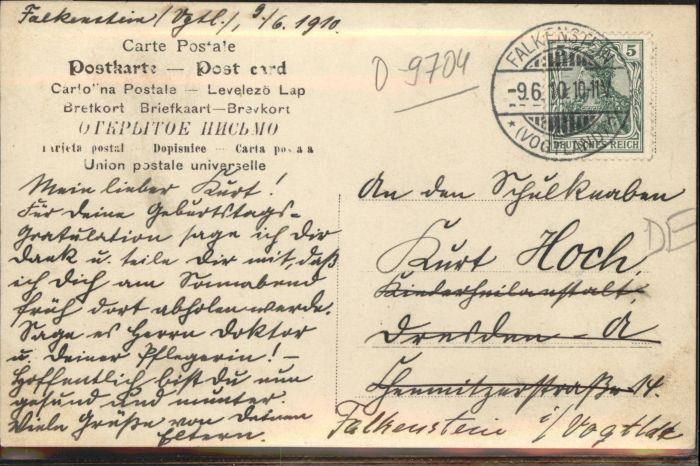 Falkenstein /Vgtl./, 9/6. 1910.
Carte Postale
Postkarte — Post card
Cartolina Postale — Levelező Lap
Brefkort Briefkaart—Brevkort
ОТКРЫТОЕ ПИСЬМО
Tarjeta postal — Dopisnice — Carta postala
Union postale universelle
D 9704
FALKENSTEIN
-9.6.10.10-11V.
* (VOGTLAND)
5
DEUTSCHES REICH
Mein lieber Kurt!
Für deine Geburtstags-
Gratulation sage ich dir
Dank u. teile dir mit, daß
ich dich am Sonnabend
früh dort abholen werde.
Sage es Herrn Doktor
u. Deiner Pflegerin! —
Hoffentlich bist du nun
gesund und munter.
Viele Grüße von deinen
Eltern.
An den Schulknaben
Kurt Hoch,
Kinderheilanstalt,
Dresden - A
Chemnitzerstraße 14.
Falkenstein i/Vogtlde
DE